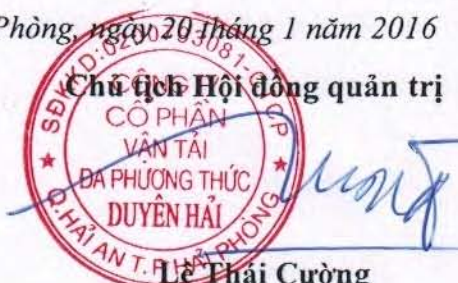 Phòng, ngày 20 tháng 1 năm 2016
Chủ tịch Hội đồng quản trị
CÔNG TY
CỔ PHẦN
VẬN TẢI
ĐA PHƯƠNG THỨC
DUYÊN HẢI
Q.HẢI AN T.P HẢI PHÒNG
Lê Thái Cường